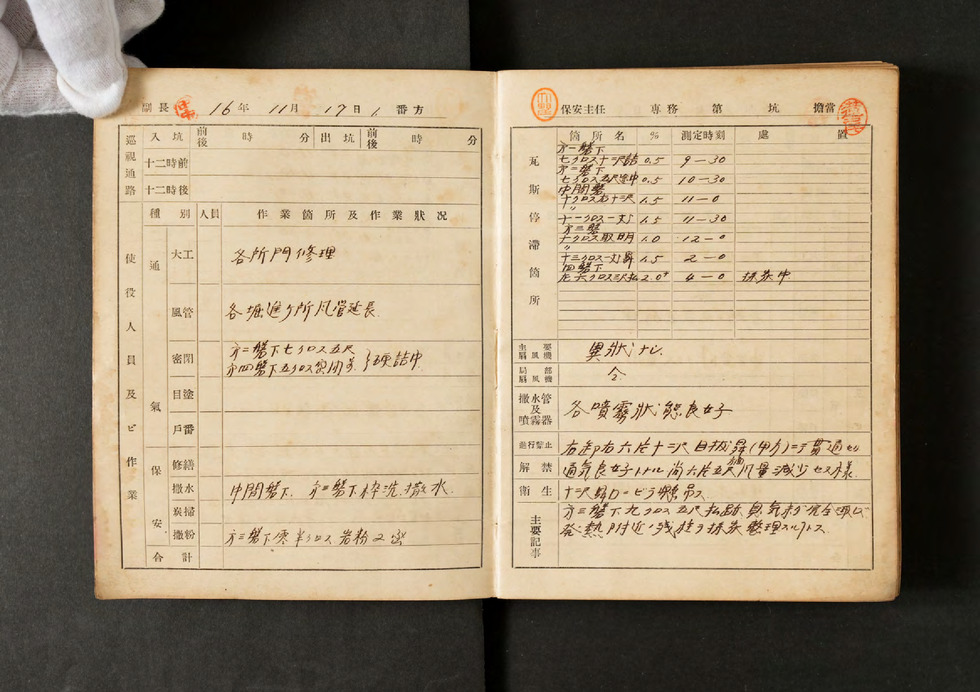 副長 16年 11月 17日 1番方
巡視通路 入坑 前後 時 分 出坑 前後 時 分
十二時前
十二時後
種別 人員 作業箇所及作業狀况
使役人員及ビ作業
通氣
大工 各所門修理
風管 各掘進ヶ所風管延長
密閉 方二盤下七クロス五尺
方四盤下五クロス密閉
目塗
戶番
保安
修繕
撒水 中間盤下、方二盤下枠洗撒水.
炭掃
撒粉 方三盤下零半クロス岩粉
合計
保安主任 專務 第 坑 擔當
瓦斯停滯箇所
箇所名 % 測定時刻 處置
方一盤下
七クロス十二尺 0.5 9-30
方二盤下
七クロス五尺 0.5 10-30
中間盤
十クロス右十二尺 1.5 11-0
〃
十一クロス一丈 1.5 11-30
方三盤
十クロス取明 1.0 12-0
〃
十三クロス一丈昇 1.5 2-0
四盤下
左六クロス 2.0+ 4-0 採炭中
主要扇風機 異狀ナシ.
局部扇風機 仝
撒水管及噴霧器 各噴霧狀態良好
進行禁止 右卸右六片十二尺目拔昇
解禁 通気良好トナル尚六片五尺風量減少セス様
衛生 十二尺
主要記事 方三盤下九クロス五尺払跡臭気
発熱附近ノ残柱ヲ採炭整理スルトス